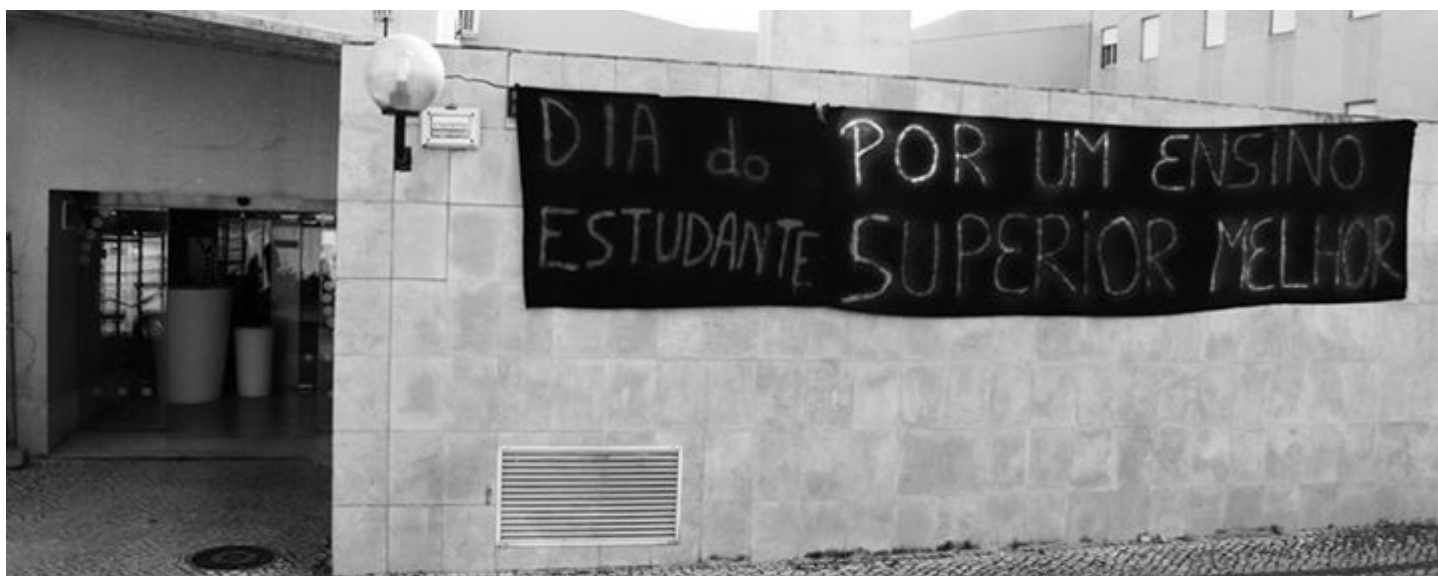 DIA do
ESTUDANTE
POR UM ENSINO
SUPERIOR MELHOR